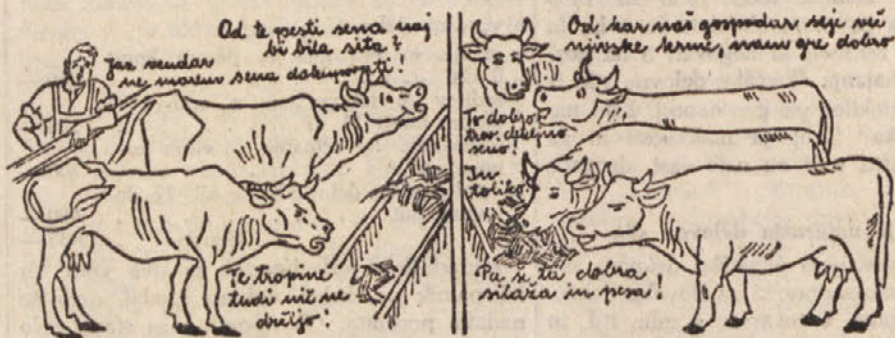 Od te pesti sena naj
bi bila sita?
Jaz vendar
ne morem sena dokupovati!
Te tropine
tudi nič ne
držijo!
Od kar naš gospodar seje več
njivske krme, nam gre dobro
To dobro
seno!
In
toliko!
Pa še ta dobra
silaža in pesa!